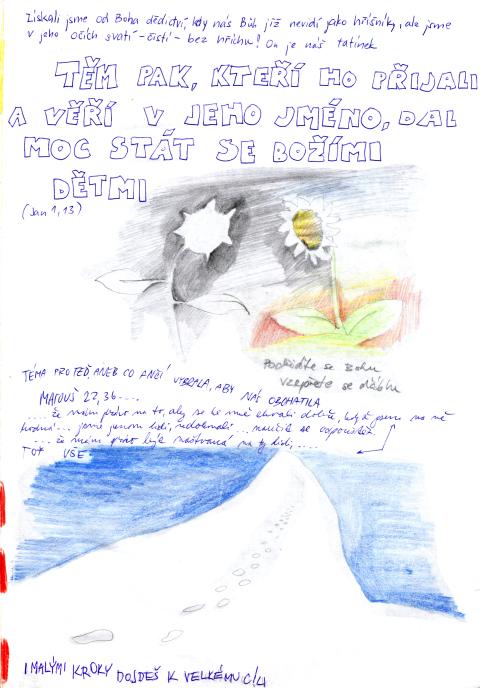 Získali jsme od Boha dědictví, kdy nás Bůh již nevidí jako hříšníky, ale jsme
v jeho očích svatí - čistí - bez hříchu! On je náš tatínek
TĚM PAK, KTEŘÍ HO PŘIJALI
A VĚŘÍ V JEHO JMÉNO, DAL
MOC STÁT SE BOŽÍMI
DĚTMI
(Jan 1,13)
Podřiďte se Bohu
vzepřete se ďáblu
TÉMA PRO TEĎ, ANEB CO ANČÍ VYBRALA, ABY NÁS OBOHATILA
MATOUŠ 22,36....
.... že mám právo na to, aby se ke mně chovali dobře, když jsem na ně
hodná!... jsme jenom lidi, nedokonalí... naučit se odpouštět
... že mám právo být naštvaná na ty lidi, ....
TOŤ VŠE
I MALÝMI KROKY DOJDEŠ K VELKÉMU CÍLI